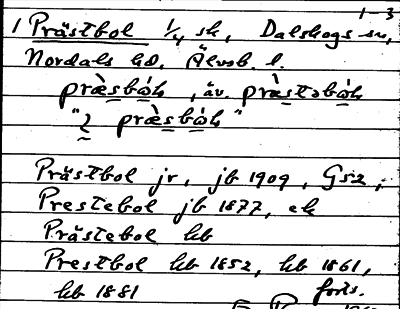 1-3
1 Prästbol 1/4 sk, Dalskogs sn,
Nordals hd, Älvsb. l.
præ̀sbóɫ, äv. præ̀stəbóɫ
"? præ̀sbóɫ"
Prästbol jr, jb 1909, GS2,
Prestebol jb 1877, ek
Prästebol kb
Prestbol kb 1852, kb 1861,
kb 1881 forts.